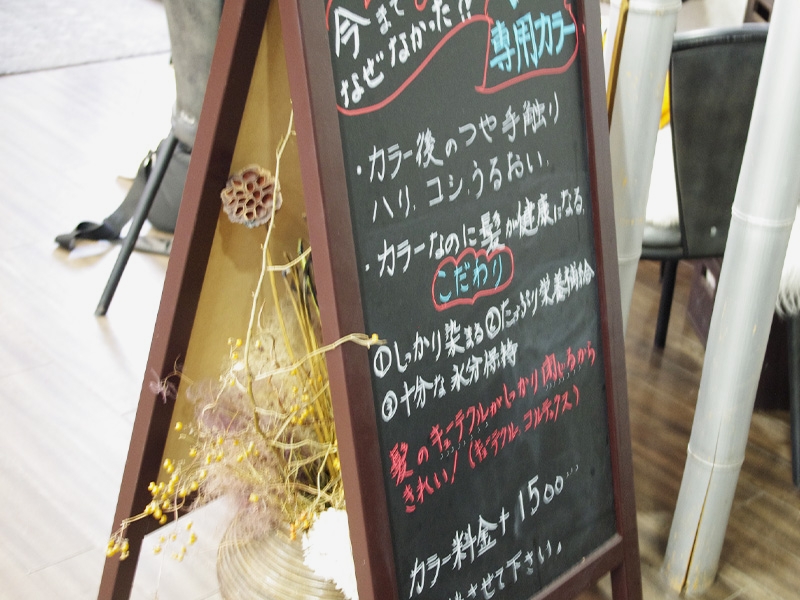 今まで
なぜなかった!!
専用カラー
・カラー後のつや手触り
ハリ、コシ、うるおい、
・カラーなのに髪が健康になる。
こだわり
①しっかり染まる②たっぷり栄養補給
③十分な水分保持
髪のキューティクルがしっかり閉じるから
きれい!(キューティクル、コルテックス)
カラー料金+1500…
させて下さい。